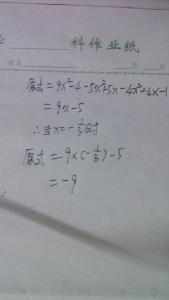 科作业纸
姓名 月 日
原式=9x²-4-5x²+5x-4x²+4x-1
=9x-5
∴当x=-1/3时
原式=9×(-1/3)-5
=-9